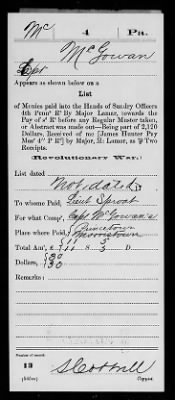 Mc 4 Pa.
McGowan
Capt
Appears as shown below on a
List
of Monies paid into the Hands of Sundry Officers
4th Penna Rt By Major Lamar, towards the
Pay of sd Rt before any Regular Muster taken,
or Abstract was made out—Being part of 2,120
Dollars, Received of me [James Hunter Pay
Masr 4th P Rt] by Major, Mr Lamar, as per Two
Receipts.
(Revolutionary War.)
List dated Not dated, 17
To whome Paid, Lieut Sproat
For what Compy, Capt McGowan's
Place where Paid, Princetown
Morristown
Total Amt, £ 11 5
11 8 3 D
Dollars, 30
30
Remarks:
Number of record:
13
S Cottrill
Copyist.